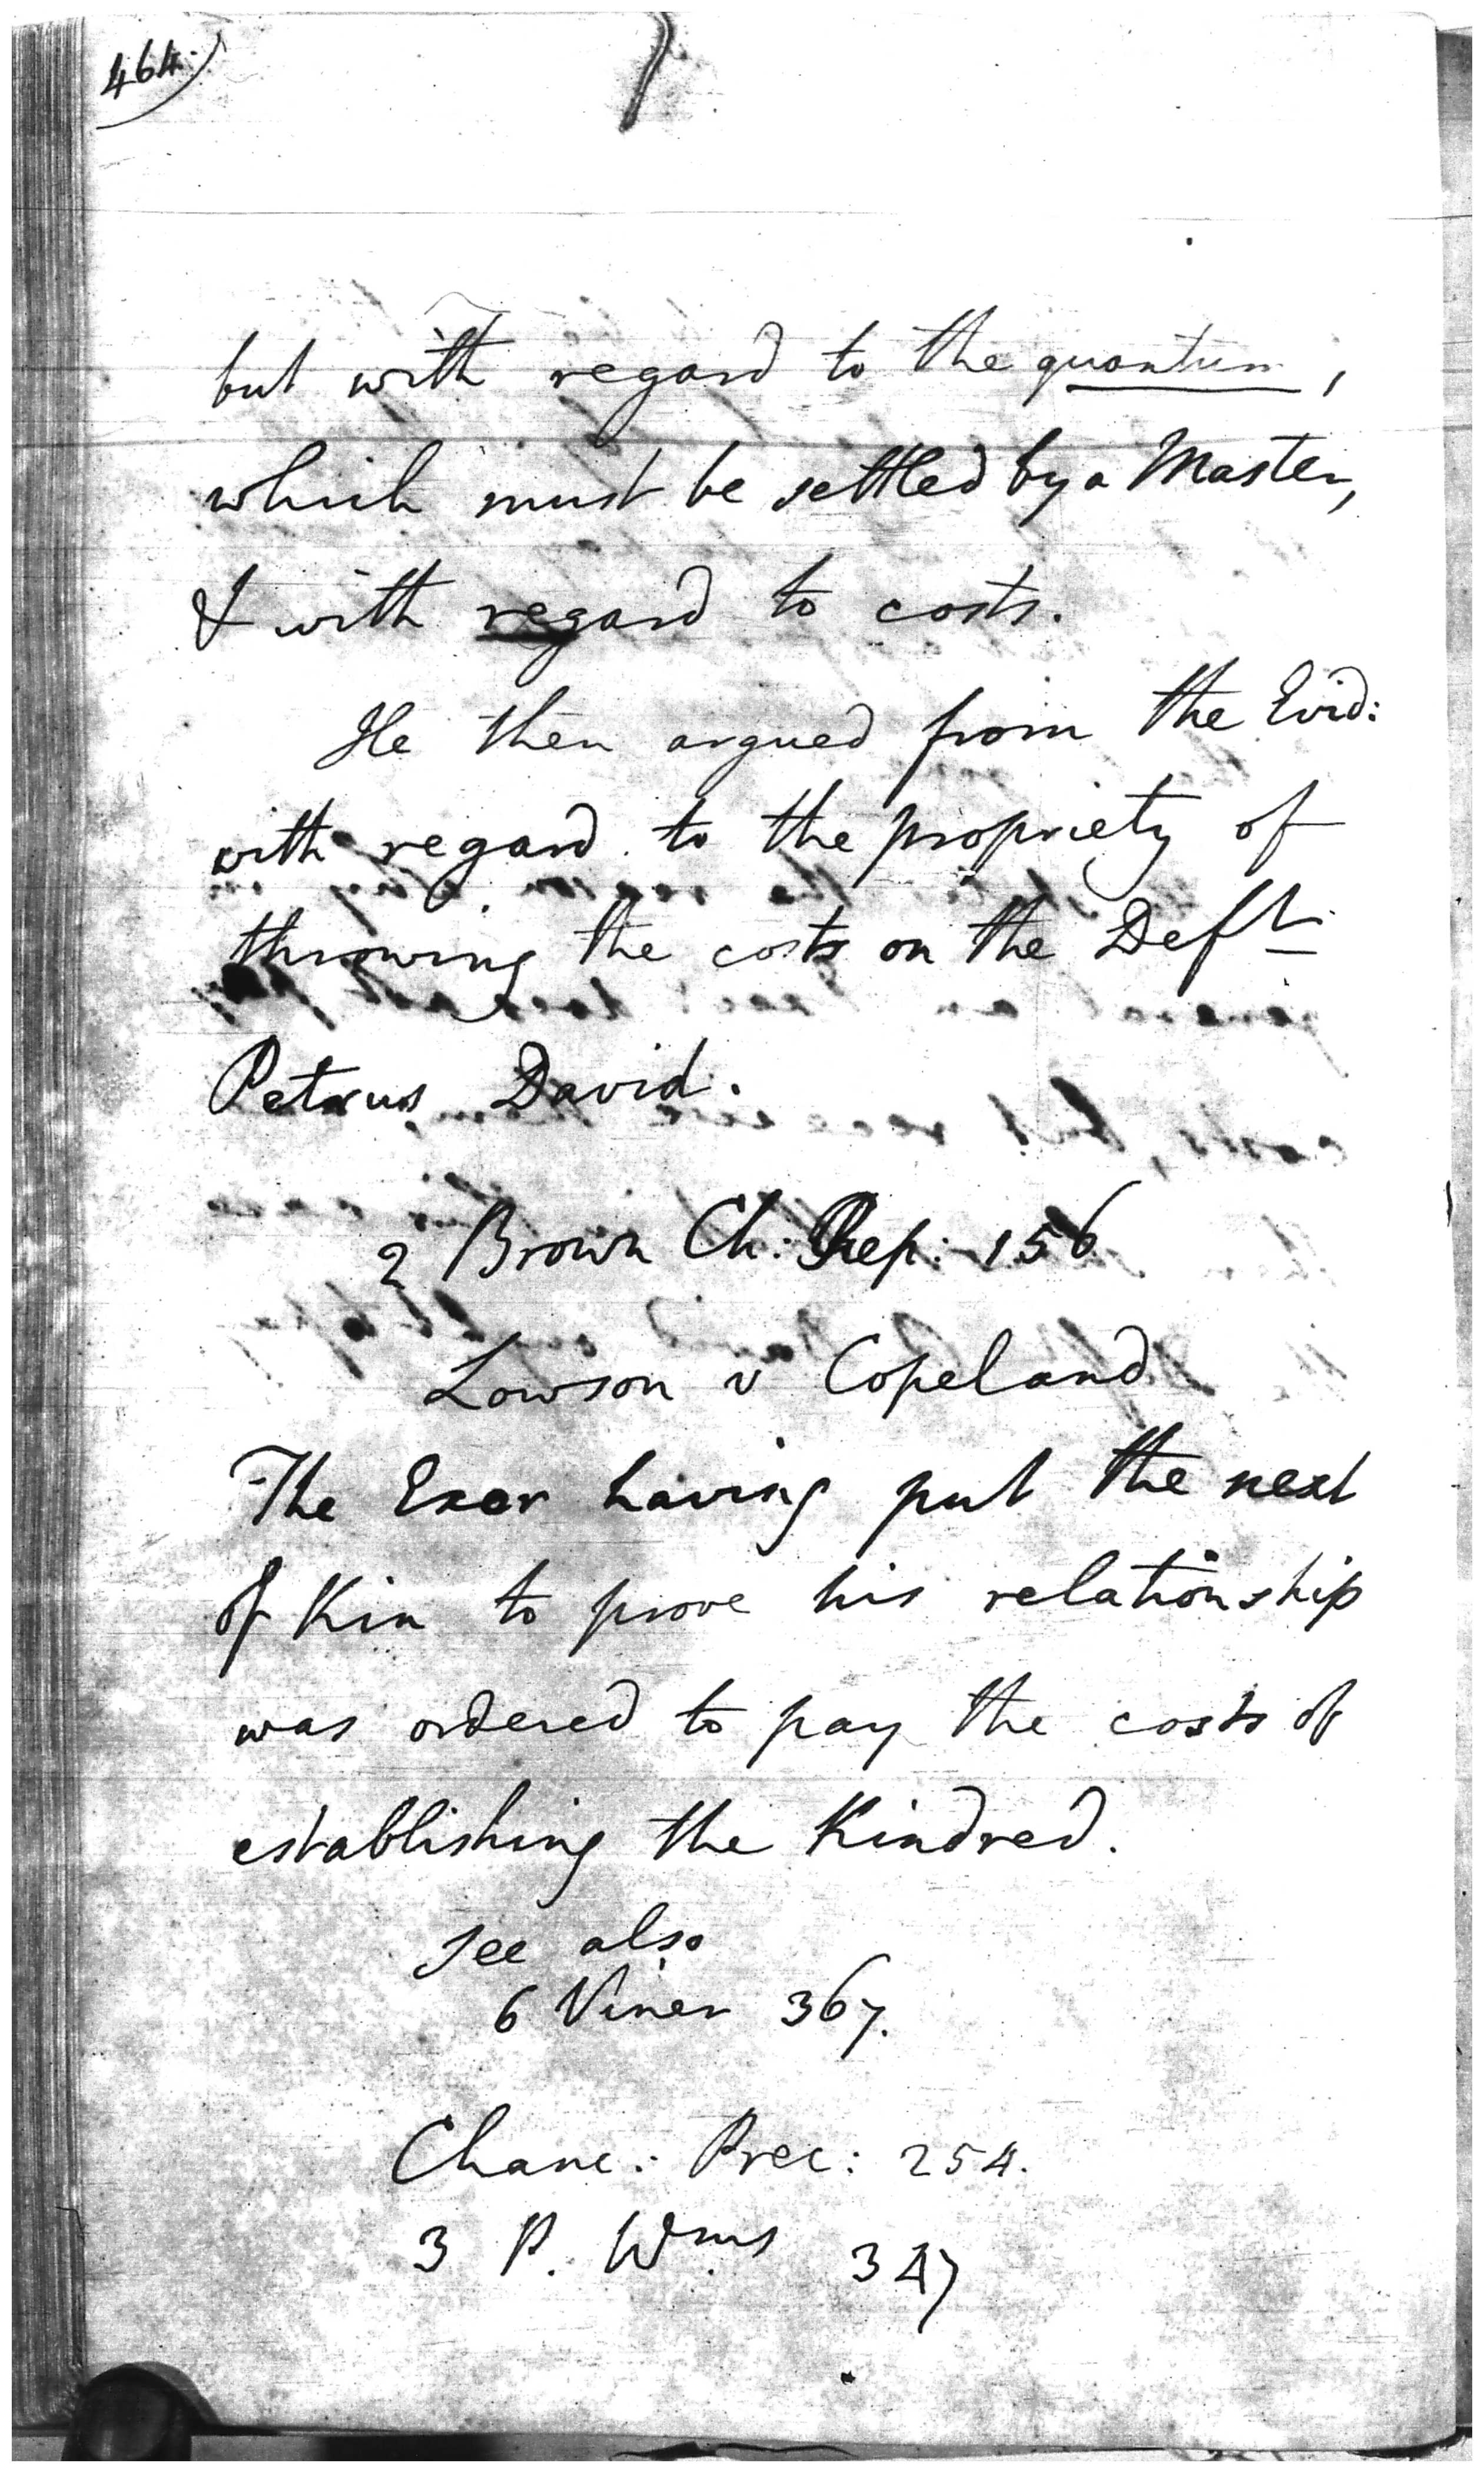 464
but with regard to the quantum,
which must be settled by a Master,
& with regard to costs.
He then argued from the Evid:
with regard to the propriety of
throwing the costs on the Deft.
Petrus David.
2 Brown Ch: Rep: 156
Lowson v Copeland
The Exor having put the next
of Kin to prove his relationship
was ordered to pay the costs of
establishing the Kindred.
see also
6 Viner 367.
Chanc: Prec: 254.
3 P. Wms 347